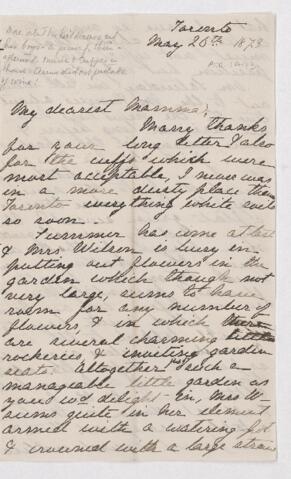 Toronto
May 20th 1873
My dearest Mamma,
Many thanks
for your long letter & also
for the cuffs which were
most acceptable, I never was
in a more dusty place than
Toronto everything white soils
so soon.
Summer has come at last
& Mrs Wilson is busy in
putting out flowers in the
garden which though not
very large, seems to have
room for any number of
flowers, & in which there
are several charming little
rockeries, & inviting garden
seats. Altogether just such a
manageable little garden as
you wd delight in, Mrs W
seems quite in her element
armed with a watering pot
& crowned with a large straw